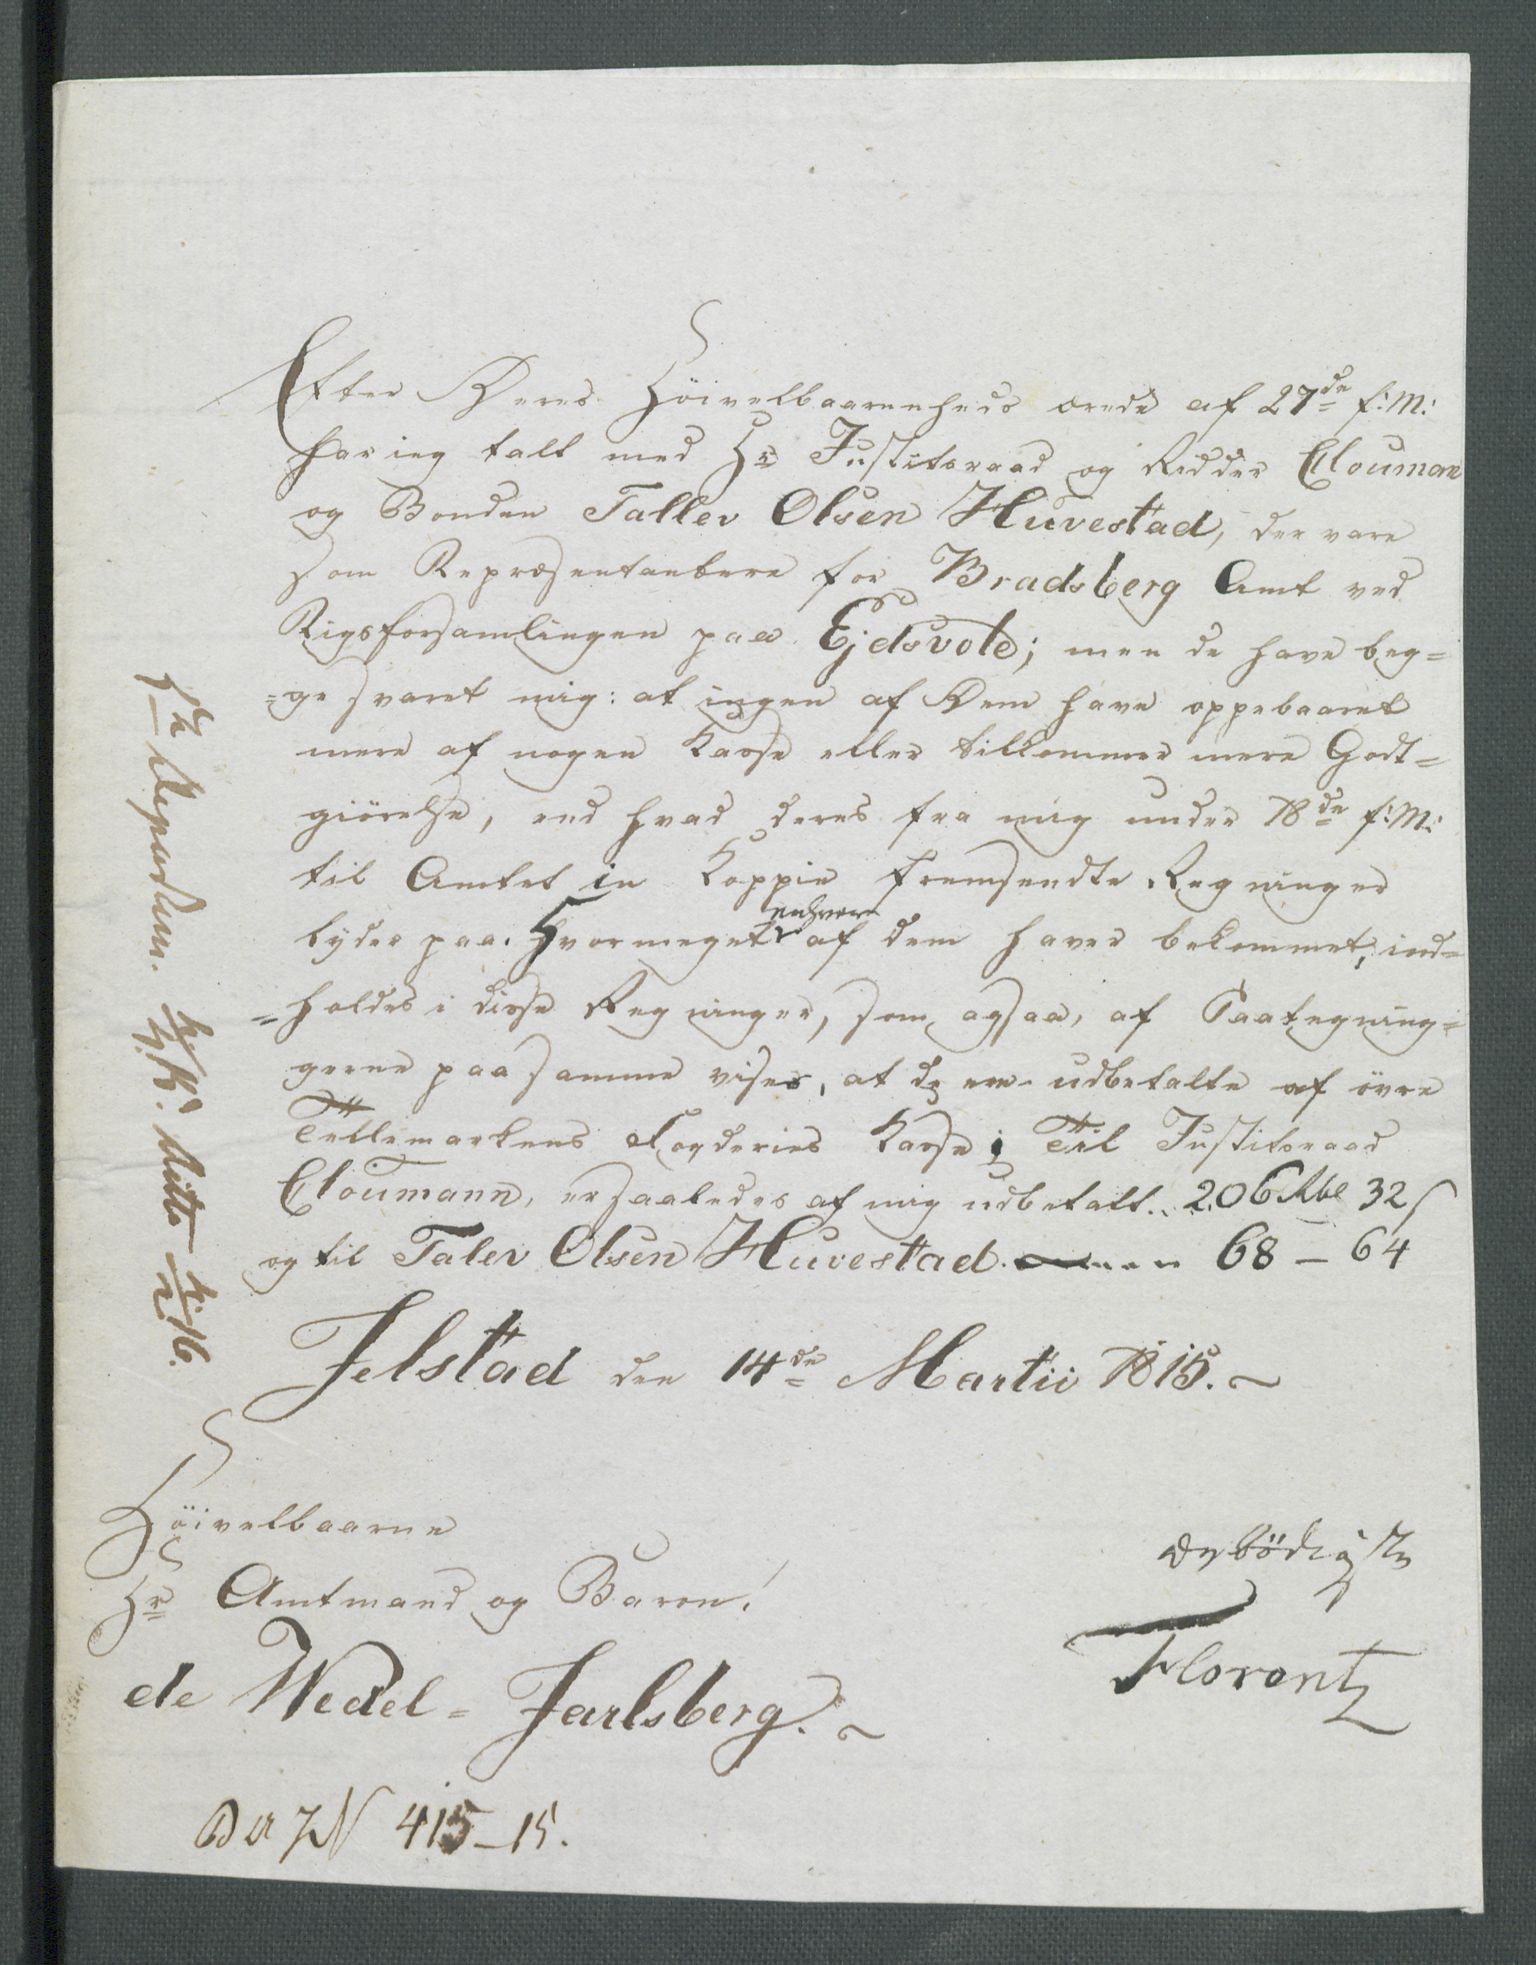 Efter Deres Höivelbaarenheds ærede af 27de f: M:
har ieg talt med Hr Justitsraad og Ridder Cloumann
og Bonden Tallev Olsen Huvestad, der vare
som Repræsentantere for Bradsberg Amt ved
Rigsforsamlingen paa Ejdsvold; men de have beg=
=ge svaret mig: at ingen af Dem have oppebaaret
mere af nogen Kasse eller tilkommer mere Godt=
giörelse, end hvad deres fra mig under 18de f: M:
til Amtet in Koppie fremsendte Regninger
lyder paa. Hvormeget enhver af dem haver bekommet, ind=
=holdes i disse Regninger, som ogsaa, af Paategning=
gerne paa samme vises, at de ere udbetalte af övre
Tellemarkens Fogderies Kasse; Til Justitsraad
Cloumann, er saaledes af mig udbetalt .. 206 Rbd 32 s
og til Talev Olsen Huvestad 68 - 64
Jelstad den 14de Martii 1815. ~
Höivelbaarne
Hr Amtmand og Baron!
de Wedel = Jarlsberg. ~
ærbödigst
Florentz
415-15.